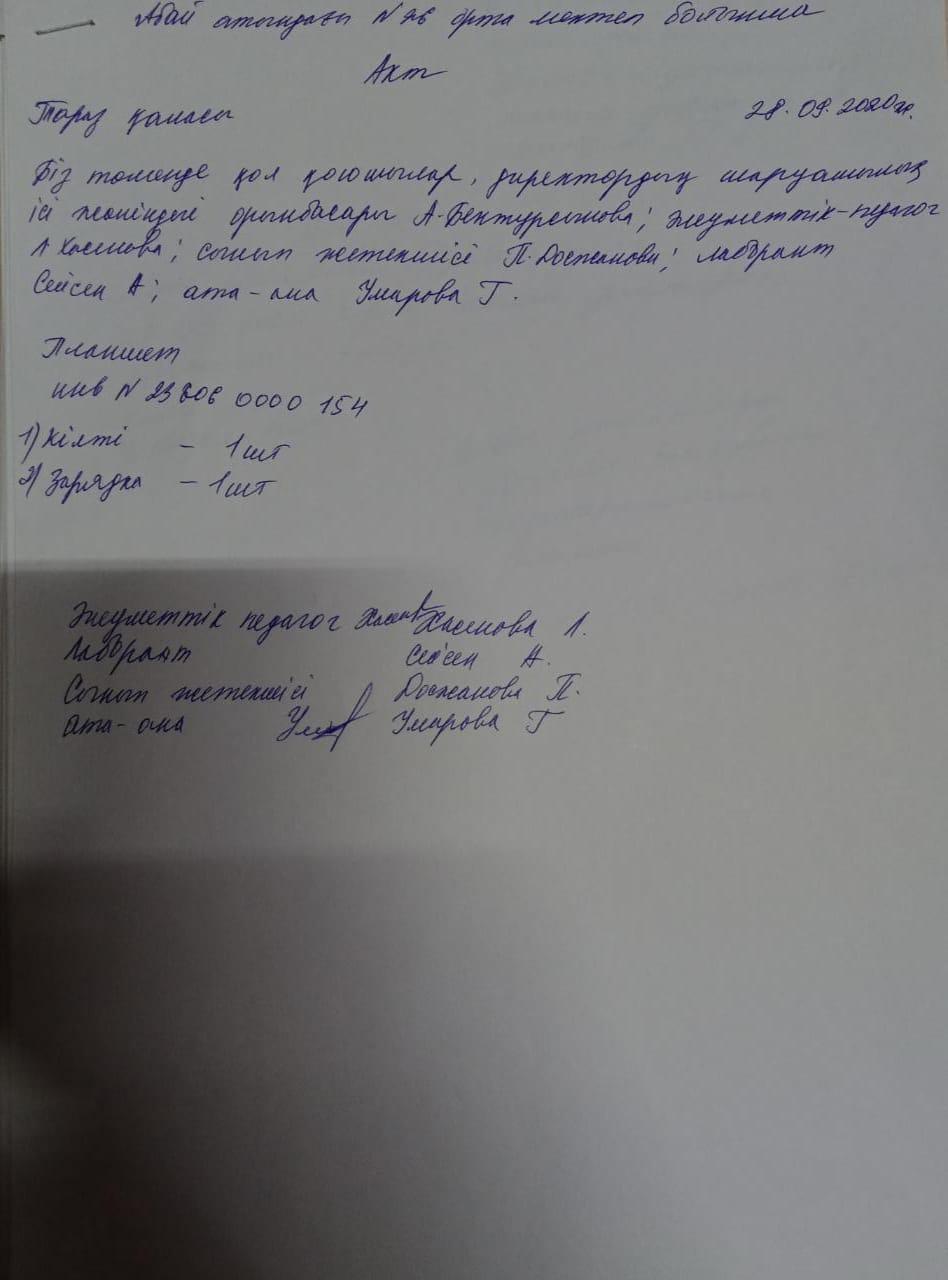 Абай атындағы N 26 орта мектеп бойынша
Акт
Тараз қаласы 28.09.2020ж.
Біз төменде қол қоюшылар, директордың шаруашылық
ісі жөніндегі орынбасары А.Бектурсынова; әлеуметтік-педагог
Л Хасенова; сынып жетекшісі П.Досжанова; лаборант
Сейсен А; ата-ана Умарова Г.
Планшет
инв N 23606 0000 154
1) Кілті - 1шт
2) Зарядка - 1шт
Әлеуметтік педагог Хасенова Л.
Лаборант Сейсен А.
Сынып жетекшісі Досжанова П.
Ата-ана Умарова Г